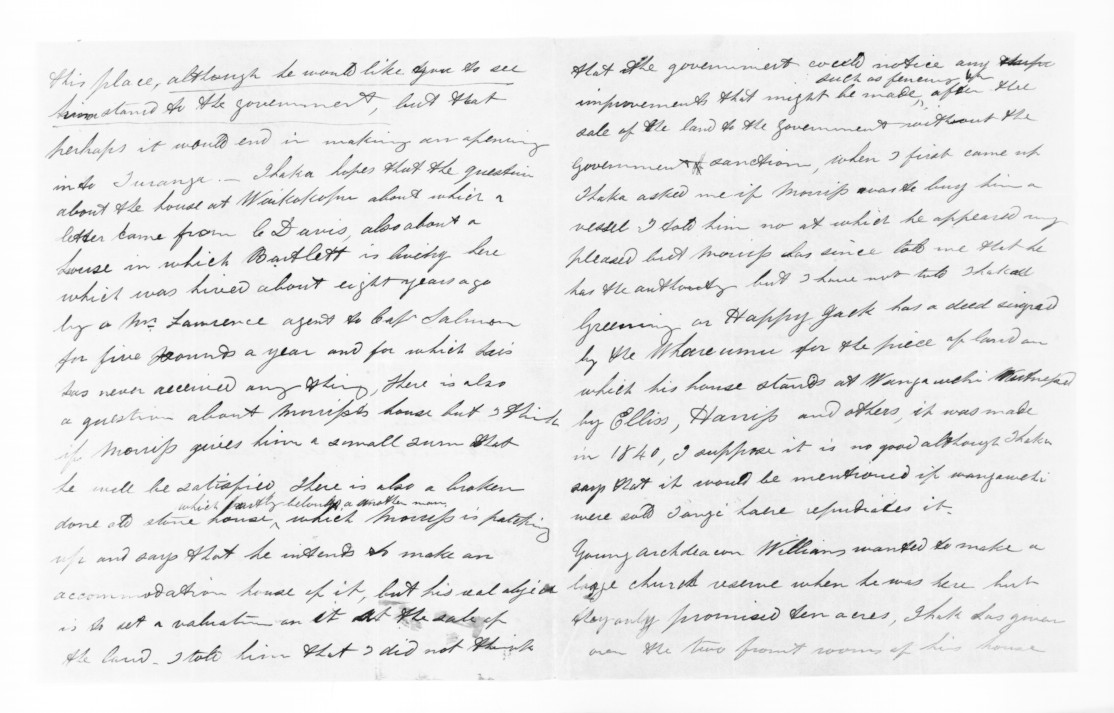 this place, although he would like you to see
him stand to the government, but that
perhaps it would end in making an opening
into Turanga. — Ihaka hopes that the question
about the house at Waikokopu about which a
letter came from C Davis, also about a
house in which Bartlett is living here
which was hired about eight years ago
by a Mr Lawrence agent to Capt Salmon
for five pounds a year and for which he is
has never received any thing, There is also
a question about Morriss's house but I think
if Morriss gives him a small sum that
he will be satisfied, There is also a broken
which partly belongs to another man
done old stone house, which Morriss is patching
up and says that he intends to make an
accommodation house of it, but his real object
is to set a valuation on it at the sale of
the land. I told him that I did not think
that the government could notice any
such as fencing &c
improvements that might be made, after the
sale of the land to the Government without the
Government sanction, when I first came up
Ihaka asked me if Morriss was to buy him a
vessel I told him no at which he appeared
pleased but Morriss has since told me that he
has the authority but I have not told Ihaka
Greening or Happy Jack has a deed signed
by the Whareumu for the piece of land on
which his house stands at Wangawehi Witnessed
by Elliss, Harriss and others, it was made
in 1840, I suppose it is no good although Ihaka
says that it would be mentioned if wangawehi
were sold Tangi haere repudiates it.
Young archdeacon Williams wanted to make a
large church reserve when he was here but
they only promised ten acres, Ihak has given
over the two front rooms of his house